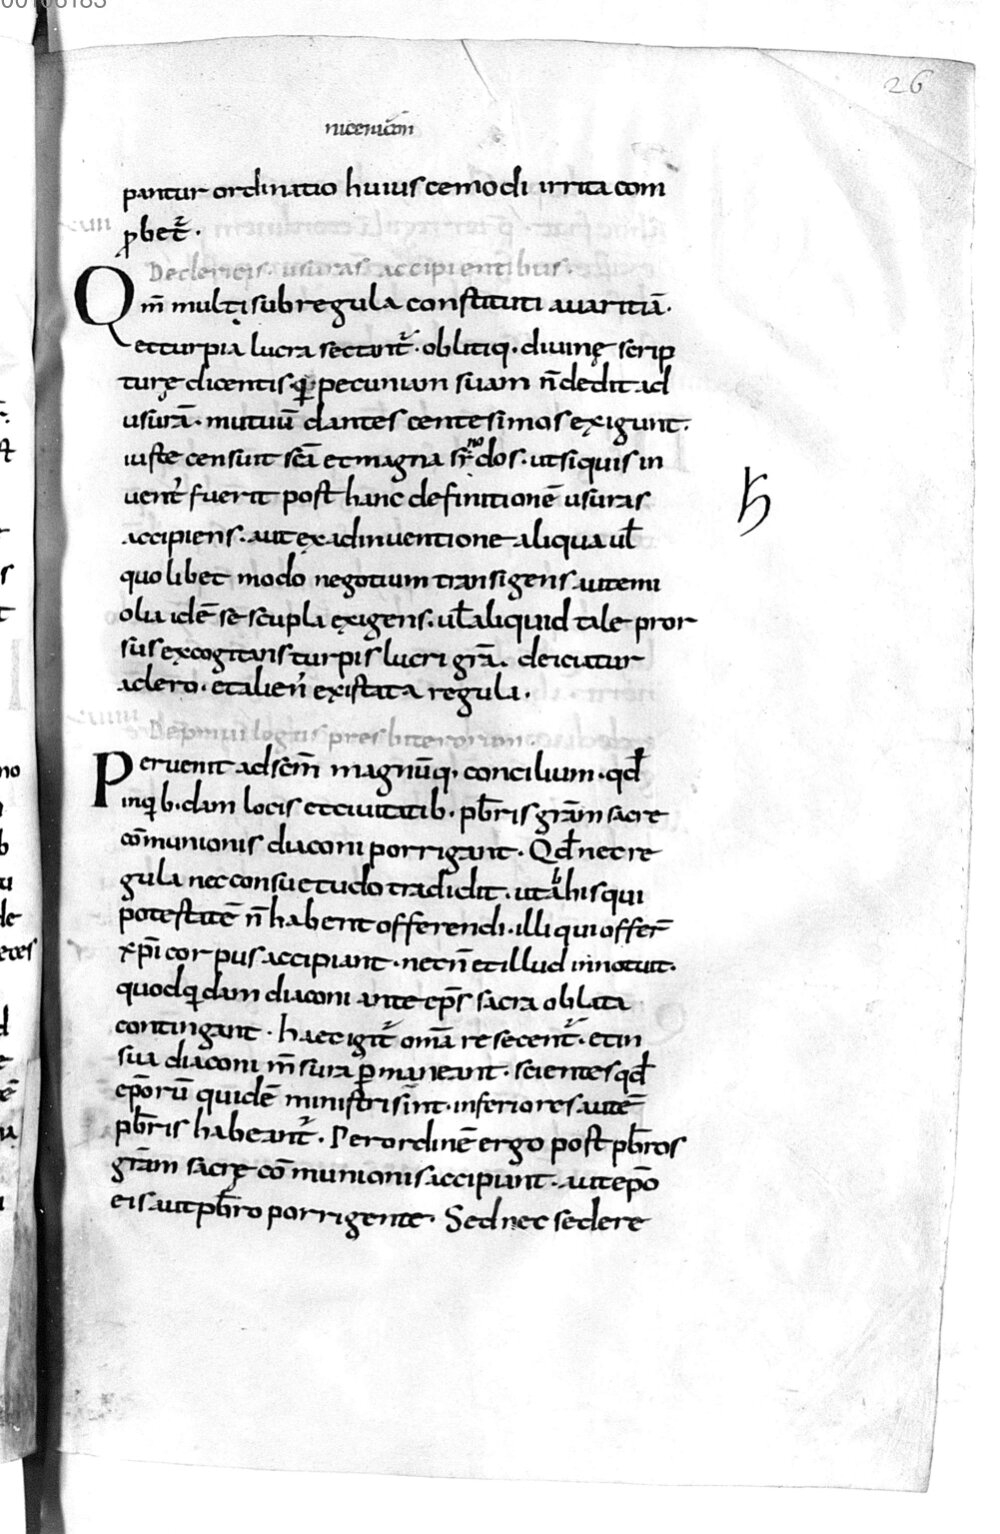 00106183
26
nicenũ cõm
pantur ordinatio huiuscemodi irrita com
ꝓbet᷑.
xvii
De clericis. usuras accipientibus.
Qm̅ multi sub regula constituti auaritiã.
et turpia lucra sectant᷑. obliti q. diuinę scrip
turę dicentis. qͥ pecuniam suam n̅ dedit ad
usurã. mutuũ dantes centesimas exigunt.
iuste censuit sc̅a et magna sẏnodos. ut si quis in
uent᷑ fuerit post hanc definitionẽ usuras
accipiens. aut ex adinuentione aliqua ul̅
quolibet modo negotium transigens. aut emi
olia idẽ sescupla exigens. ul̅ aliquid tale pror
sus excogitans turpis lucri gr̅a. deiciatur
a clero. et alien᷒ existat a regula.
xviii
De p̅uilogiis presbiterorum
Peruenit ad sc̅m magnũ q. concilium. qd̅
in qͥb. dam locis et ciuitatib. pb̅ris gr̅am sacre
cõmunionis diaconi porrigant. Qd̅ nec re
gula nec consuetudo tradidit. ut ab his qui
potestatẽ n̅ habent offerendi. illi qui offer̅
xp̅i corpus accipiant. nec n̅ et illud innotuit.
quod qͥdam diaconi ante ep̅s sacra oblata
contingant. haec igit᷑ om̅a resecent᷑. et in
sua diaconi m̅sura ꝑmaneant. scientes qd̅
ep̅orũ quidẽ ministri sint. inferiores autẽ
pb̅ris habeant᷑. Per ordinẽ ergo post pb̅ros
gr̅am sacrę cõmunionis accipiant. aut ep̅o
eis aut pb̅ro porrigente. Sed nec sedere